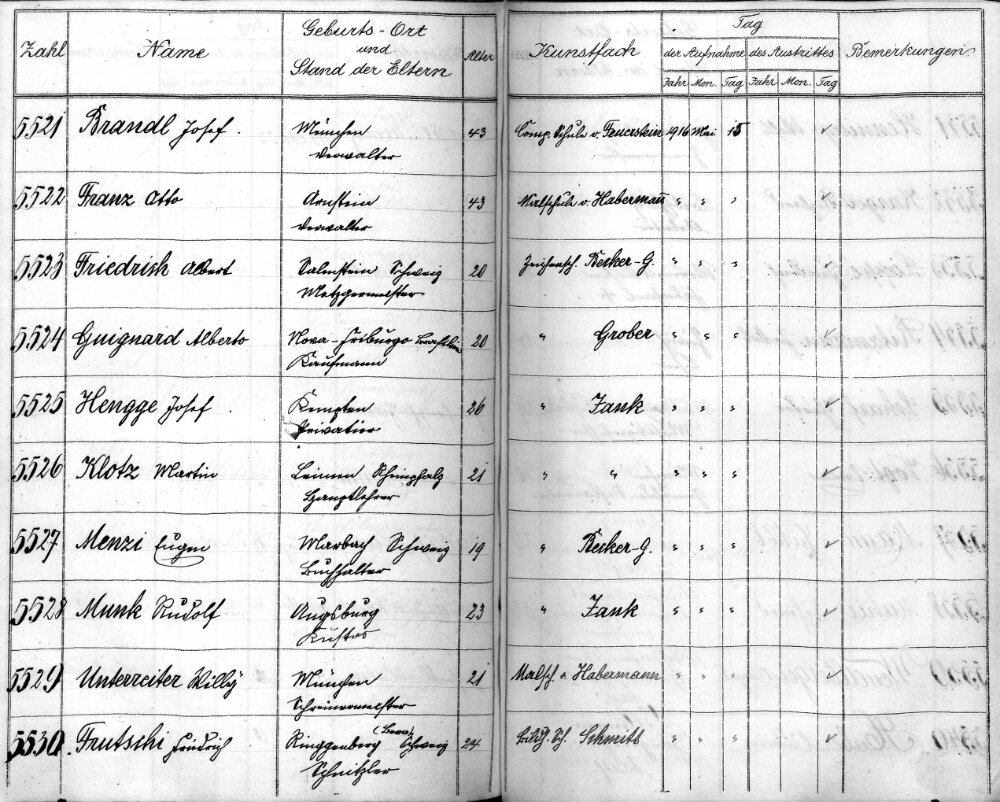 Zahl Name Geburts-Ort und Stand der Eltern Alter Kunstfach Tag Bemerkungen
der Aufnahme des Austrittes
Jahr Mon. Tag Jahr Mon. Tag
5521 Brandl Josef. München 43 Comp. Schule v. Feuerstein 1916 Mai 15
Verwalter
5522 Franz Otto Arnstein 43 Malschule v. Habermann " " "
Verwalter
5523 Friedrich Albert Salmstein Schweiz 20 Zeichensch. Becker-G. " " "
Metzgermeister
5524 Guignard Alberto Nova-Friburgo Brasilien 20 " Grober " " "
Kaufmann
5525 Hengge Josef. Kempten 26 " Jank " " "
Privatier
5526 Klotz Martin Rheinpfalz 21 " " " " "
Hauptlehrer
5527 Menzi Eugen Marbach Schweiz 19 " Becker-G. " " "
Buchhalter
5528 Munk Rudolf Augsburg 23 " Jank " " "
Kustos
5529 Unterreiter Willy München 21 Malsch. v. Habermann " " "
Schreinermeister
5530. Frutschi Friedrich Ringgenberg (Bern) Schweiz 24 Bildh. Sch. Schmitt " " "
Schnitzler